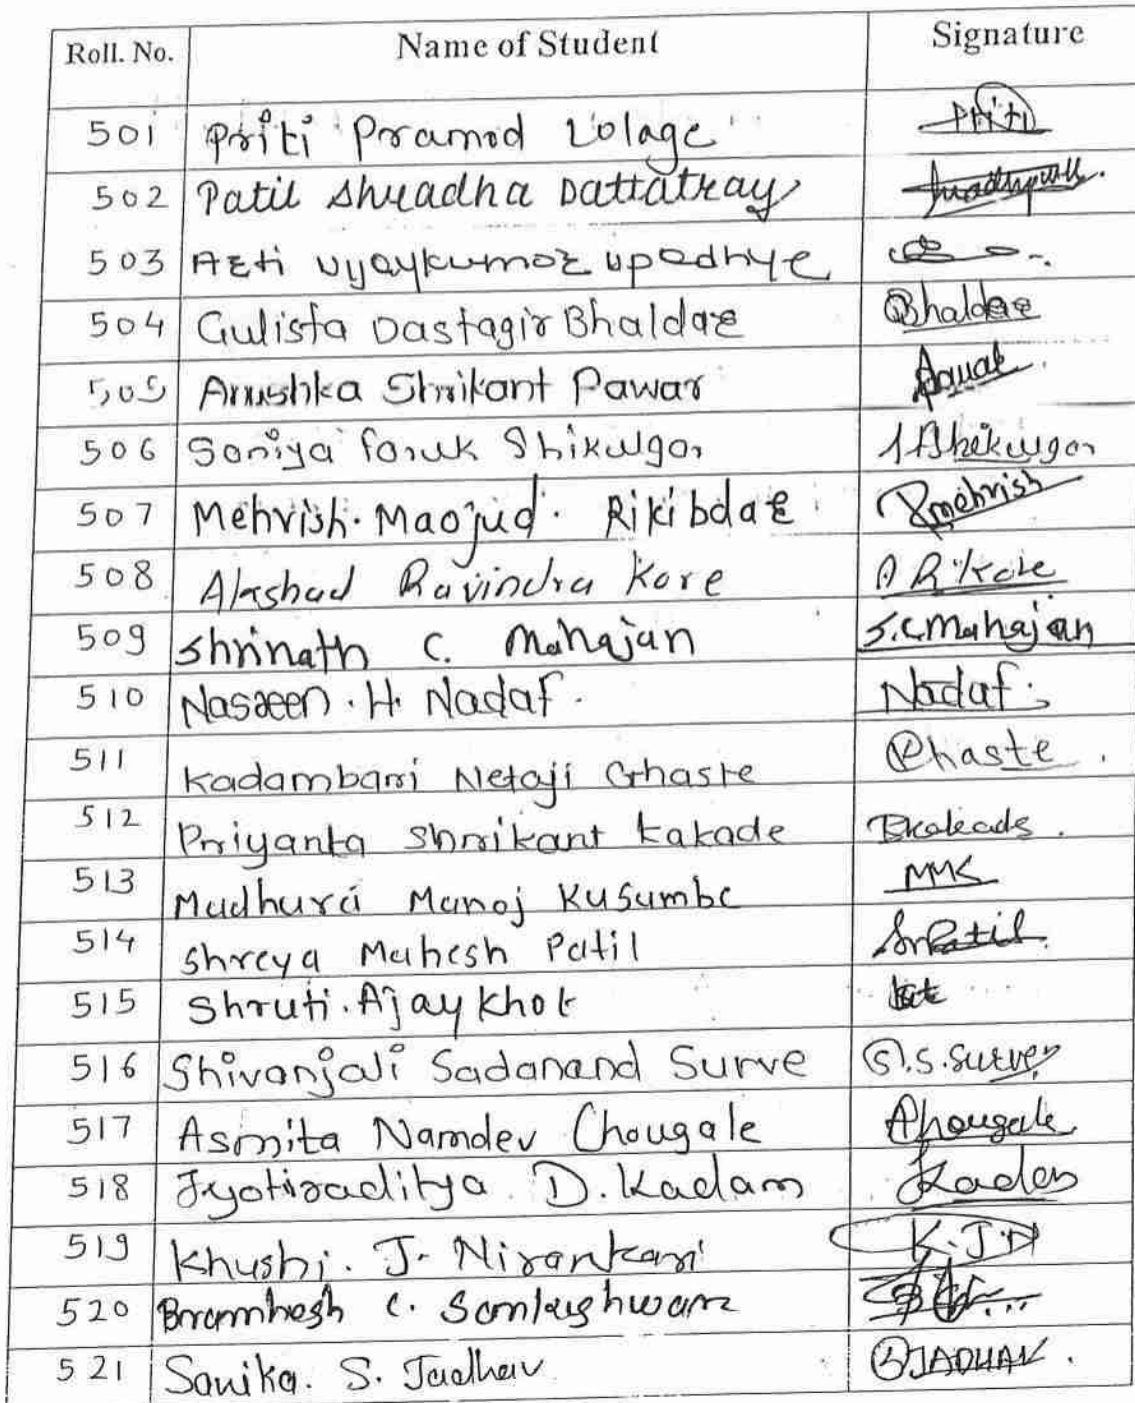 Roll. No. Name of Student Signature
501 Priti Pramod Lolage Priti
502 Patil Shradha Dattatray
503 Arti Vijaykumar Upadhye
504 Gulista Dastagir Bhaldar Bhaldar
505 Anushka Shrikant Pawar Pawar
506 Saniya Faruk Shikalgar Shikalgar
507 Mehrish. Maojud. Rikibdar Rmehrish
508 Akshad Ravindra Kore A R Kore
509 Shrinath C. Mahajan S.C Mahajan
510 Nasreen. H. Nadaf. Nadaf.
511 Kadambari Netaji Ghaste Ghaste
512 Priyanka Shrikant Kakade Pkakade.
513 Madhura Manoj Kusumbe MMK
514 Shreya Mahesh Patil SmPatil.
515 Shruti. Ajay Khot
516 Shivanjali Sadanand Surve S.S. Surve
517 Asmita Namdev Chougale Chougale
518 Jyotiraditya D. Kadam Kadam
519 Khushi. J. Nirankari K.J.N
520 Bramhesh C.
521 Sanika. S. Jadhav SJADHAV.